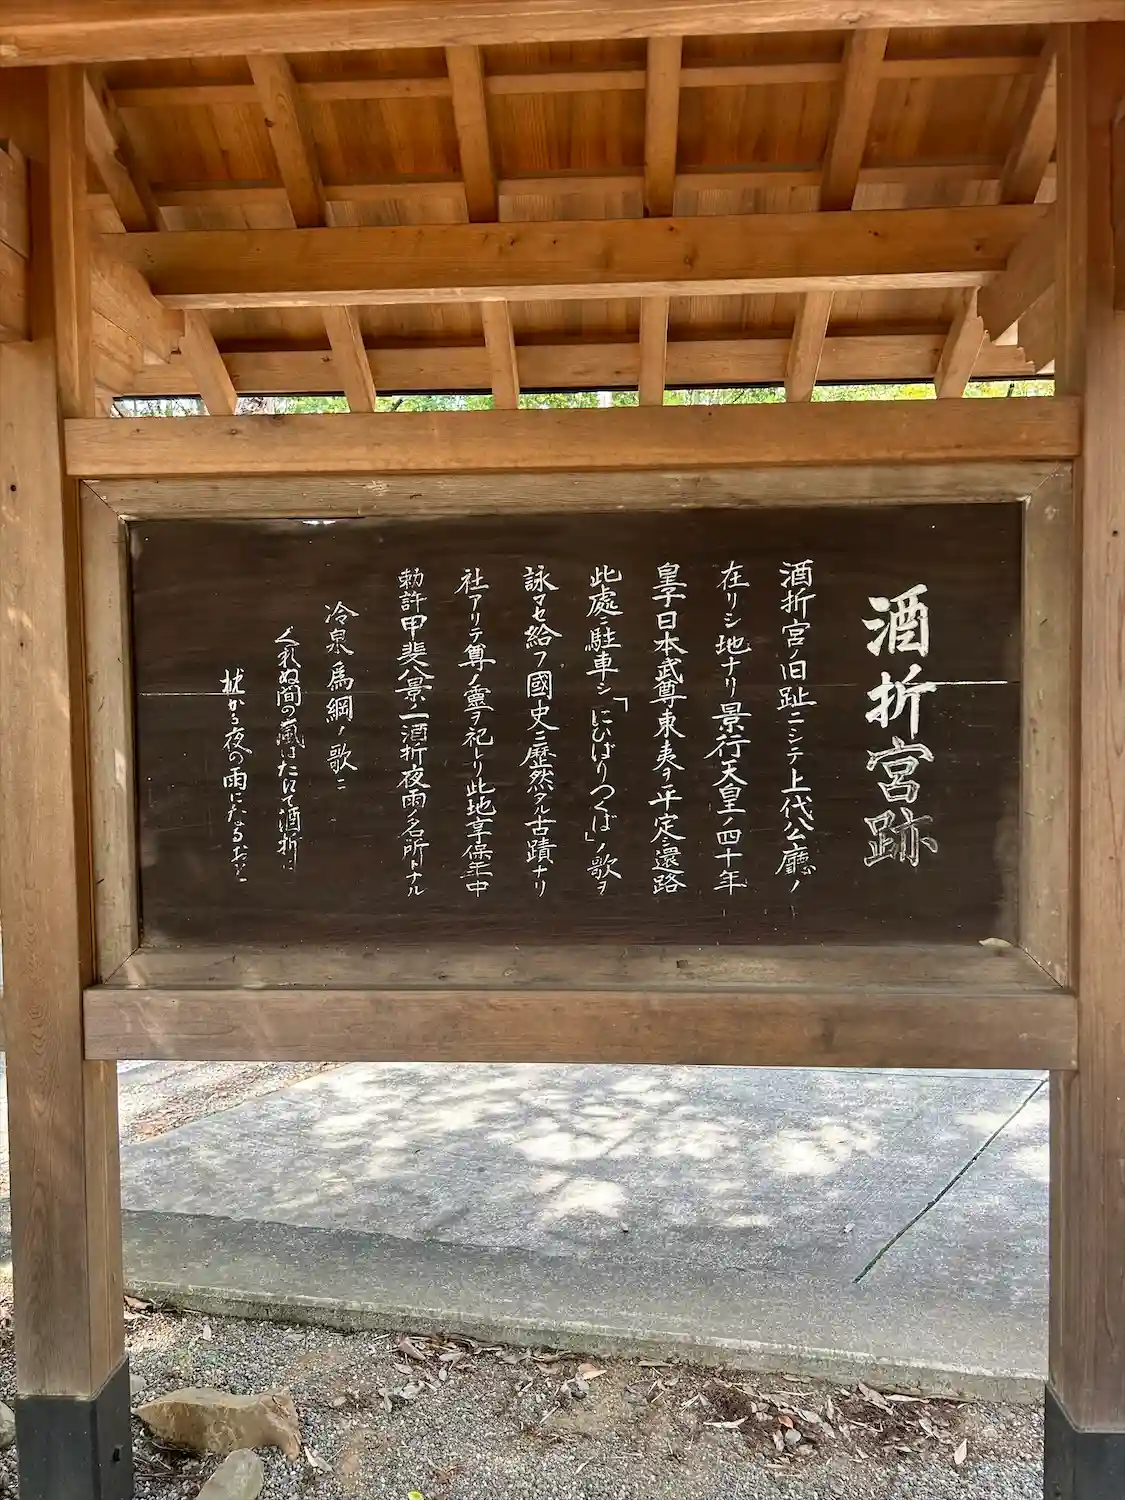 酒折宮跡
酒折宮ノ旧趾ニシテ上代公廳ノ
在リシ地ナリ景行天皇ノ四十年
皇子日本武尊東夷ヲ平定シ還路
此處ニ駐車シ「にひばりつくば」ノ歌ヲ
詠マセ給フ國史ニ歴然タル古蹟ナリ
社アリテ尊ノ靈ヲ祀レリ此地享保年中
勅許甲斐八景ノ一酒折夜雨ノ名所トナル
冷泉為綱ノ歌ニ
くれぬ間の嵐はたえて酒折に
枕かる夜の雨になるおと